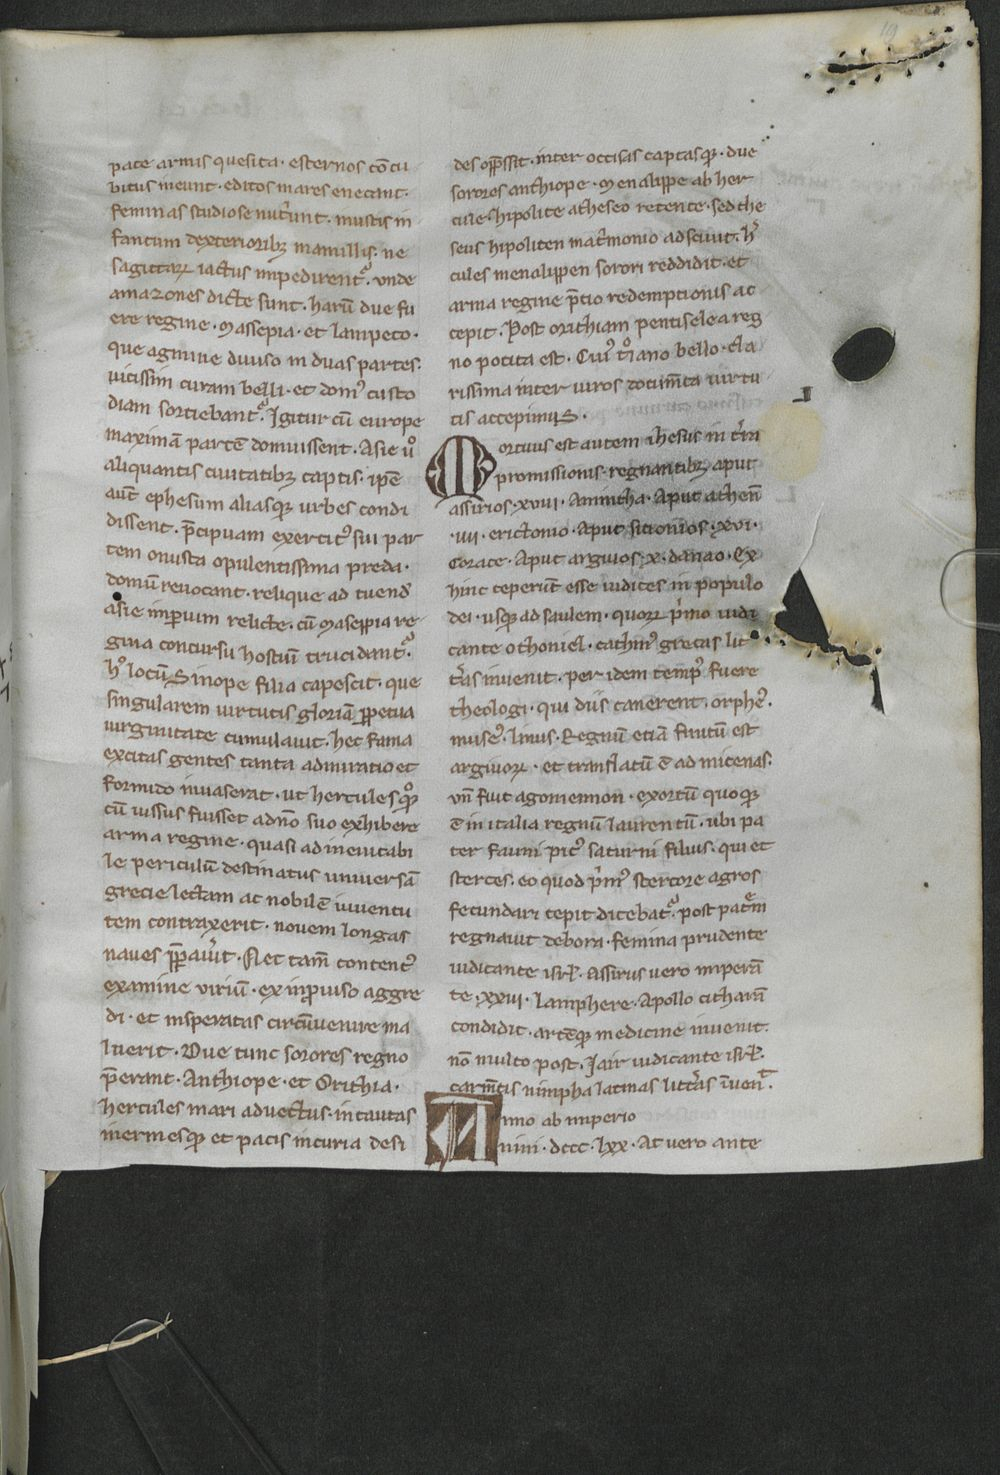 pace armis quesita. esternos cōcu
bitus ineunt. editos mares enecant.
feminas studiose nut͛unt. inustis in
fantum dexterioribꝫ mamillis. ne
sagittaꝝ iactus impedirent᷑. unde
amazones dicte sunt. harū due fu
ere regine. Massepia. et lampeto.
que agmine diuiso in duas partes.
uicissim curam belli. et domꝰ custo
diam sortiebant᷑. Igitur cū europe
maximā partē domuissent. Asie uͦ
aliquantis ciuitatibꝫ captis. ipē
aut̄ ephesum aliasqꝫ urbes condi
dissent. p̄cipuam exercitꝰ sui par
tem onusta opulentissima preda.
domū reuocant. relique ad tuend̄
asie imꝑium relicte. cū Maseppia re
gina concursu hostiū trucidant᷑.
hꝰ locū Sinope filia capescit. que
singularem uirtutis gloriā ꝑpetua
uirginitate cumulauit. hec fama
excitas gentes tanta admiratio et
formido inuaserat. ut hercules qͦꝫ
cū iussus fuisset a dn̄o suo exhibere
arma regine. quasi ad ineuitabi
le periculū destinatus uniuersā
grecie lectam ac nobilē iuuentu
tem contraxerit. nouem longas
naues p̄ꝑau͛it. Nec tam̄ contentꝰ
examine uiriū. ex inꝓuiso aggre
di. et insperatas circūuenire ma
luerit. Due tunc sorores regno
p̄erant. Anthiope. et Orithia.
hercules mari aduectus. incautas
inermesqꝫ et pacis incuria desi
des opp̄ssit. inter occisas captasqꝫ. due
sorores anthiope. Menalippe ab her
cule. hipolite a theseo retente. sed the
seus hipoliten mat͛monio adsciuit. h͛
cules menalippen sorori reddidit. et
arma regine p̄cio redemptionis ac
cepit. Post orithiam pentiselea reg
no potita est. Cuiꝰ tͦiano bello. cla
rissima inter uiros documēta uirtu
tis accepimus.
Mortuus est autem ihesus in t͛ra
promissionis. regnantibꝫ aput
assirios. xviii. Amintha. Aput athen̄
.iiii. erictonio. Aput sicionios. xvi.
Corace. Aput argiuos. x. danao. Ex
hinc ceperūt esse iudices in populo
dei. usqꝫ ad saulem. quoꝝ p͛mo iudi
cante othoniel. cathmꝰ grecas lit
t͛as inuenit. per idem tempꝰ fuere
theologi. qui diis canerent. orpheꝰ.
museꝰ. linus. Regnū etiā finitū est
argiuoꝝ. et translatū ē ad micenas.
un̄ fuit agomennon. exortū quoqꝫ
ē in italia regnū laurentū. ubi pa
ter fauni picꝰ saturni filius. qui et
sterces. eo quod p͛mꝰ stercore agros
fecundari cepit dicebat᷑. post patꝰm
regnauit debora. femina prudente
iudicante isrl̄. Assirus uero imperā
te. xxiii. Lamphere. Apollo citharā
condidit. artēqꝫ medicine inuenit.
nō multo post. Jair iudicante isrl̄.
carm̄tis nimpha latinas litt͛as īuen᷑.
Anno ab imperio
nini. dccc. lxx. At uero ante